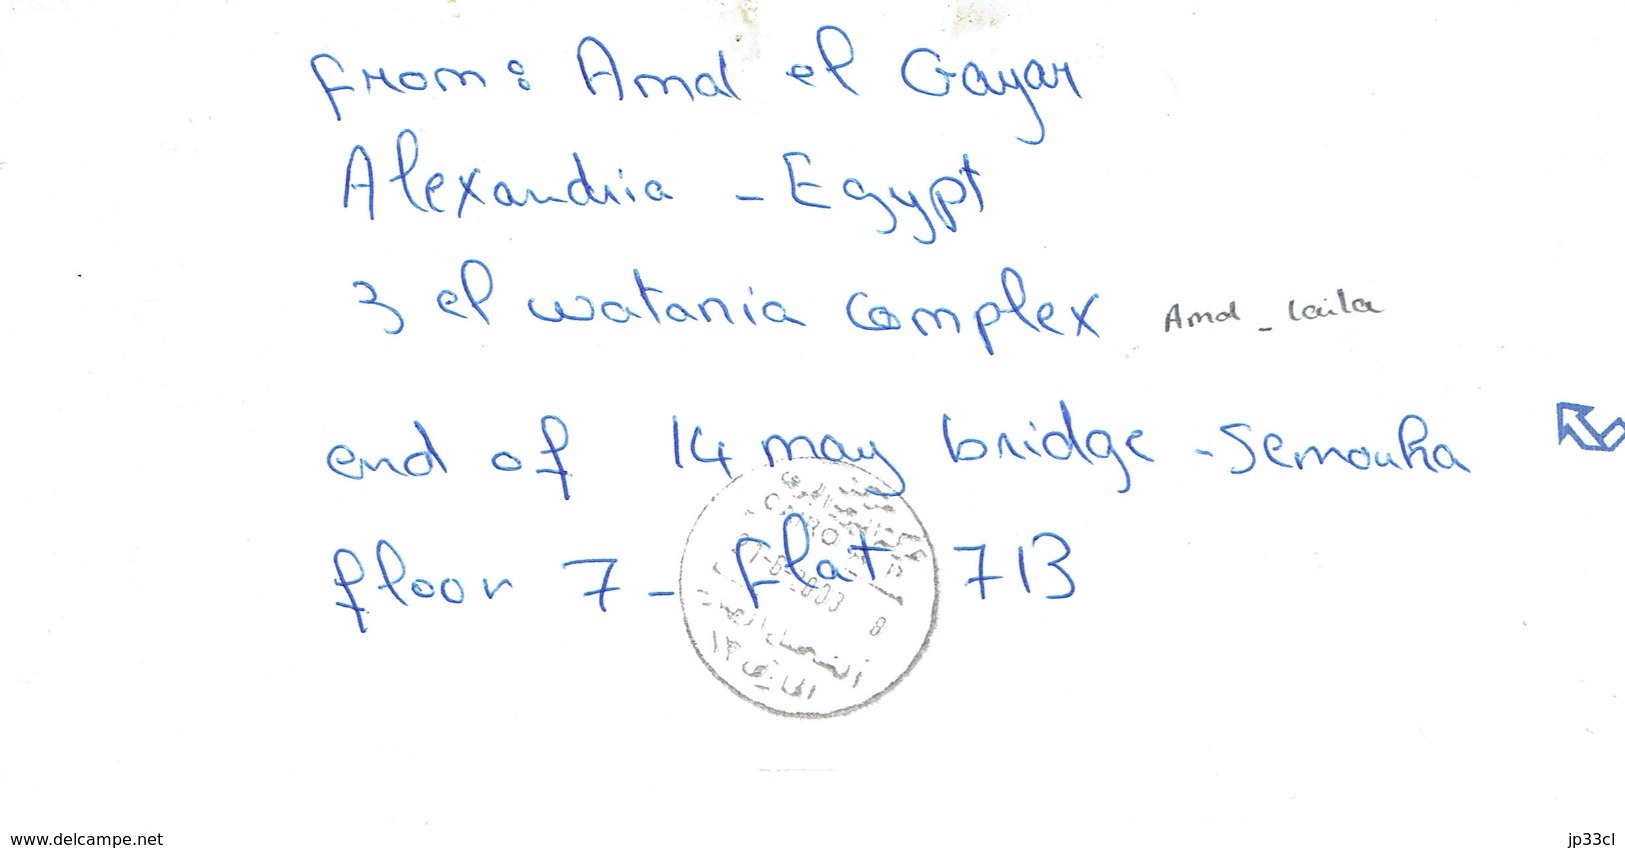 From: Amal el Gayar
Alexandria - Egypt
3 el watania complex
Amal - laila
end of 14 may bridge - Semouha
floor 7 - Flat 713
CAIRO
8
www.delcampe.net
jp33cl